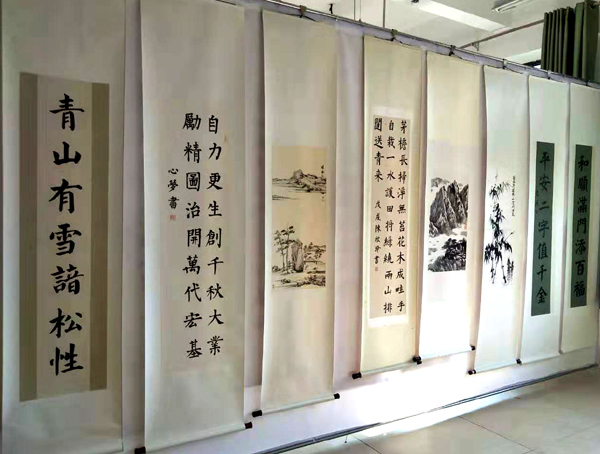 青山有雪諳松性
自力更生創千秋大業
勵精圖治開萬代宏基
心夢書
茅檐長掃淨無苔花木成畦手
自栽一水護田將綠繞兩山排
闥送青来
戊戌陳書
平安二字值千金
和順滿門添百福